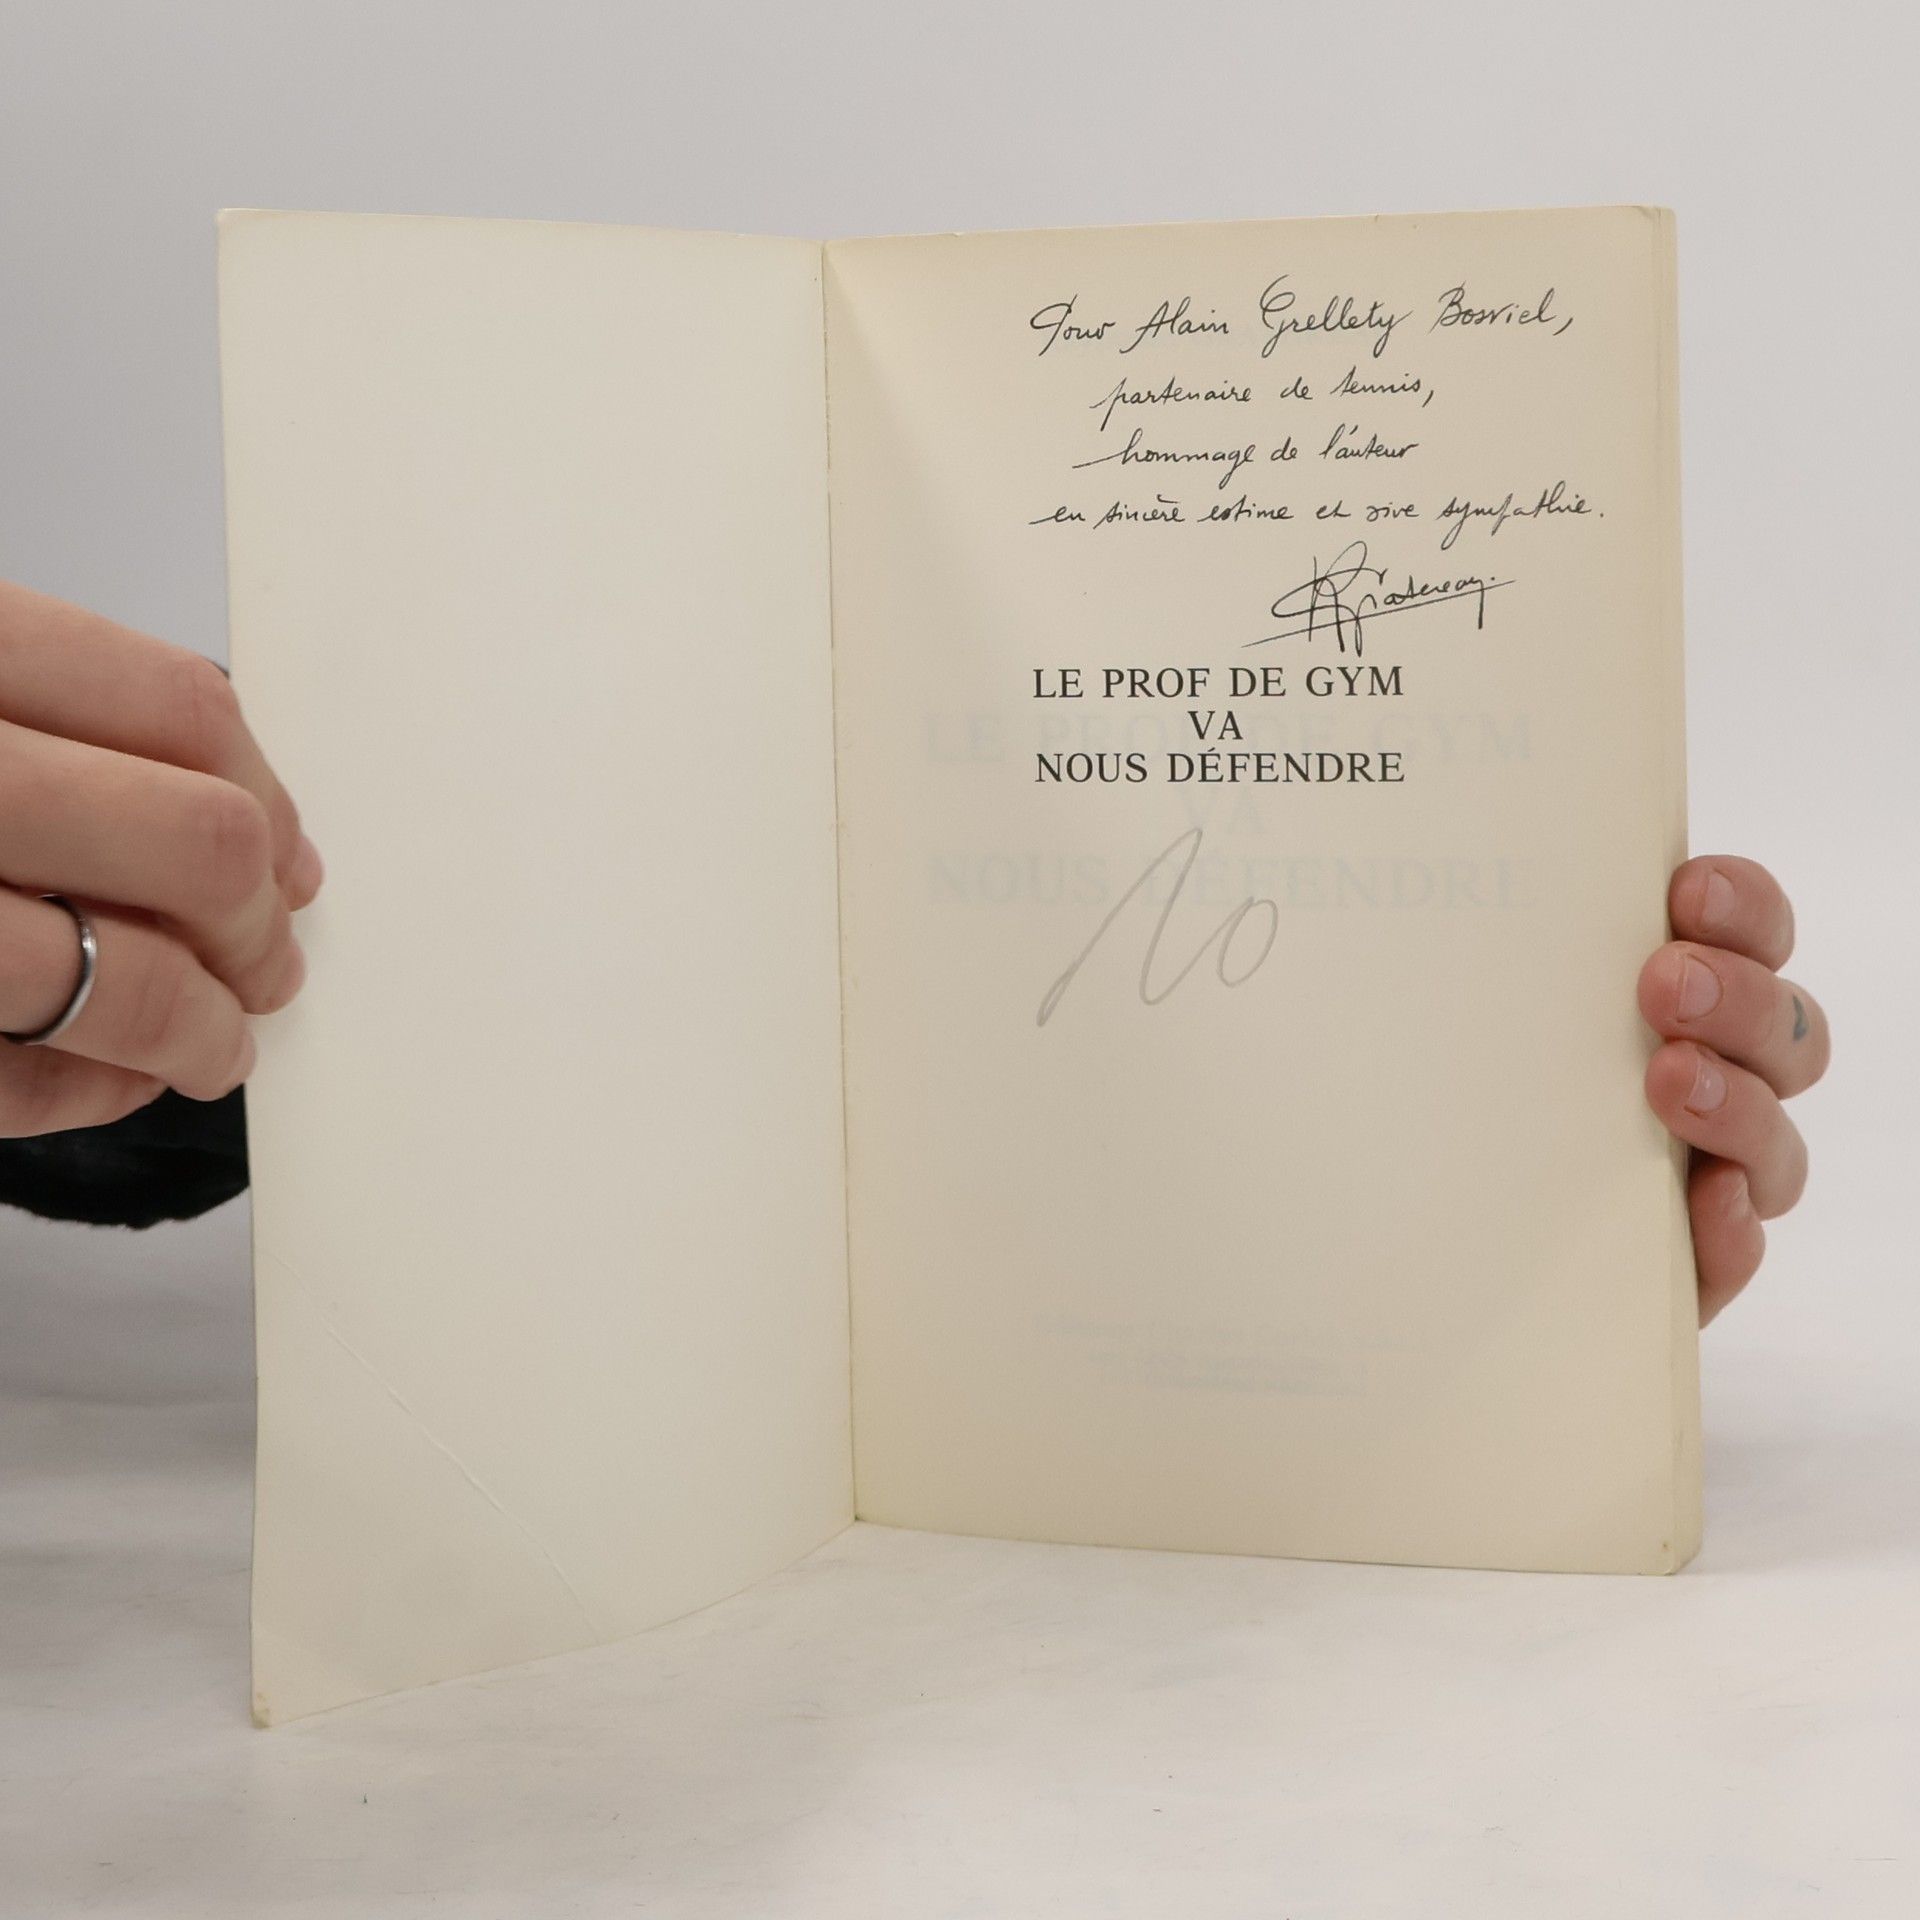 Pour Alain Grellety Bosviel,
partenaire de tennis,
hommage de l'auteur
en sincère estime et vive sympathie.
LE PROF DE GYM
VA
NOUS DÉFENDRE
10